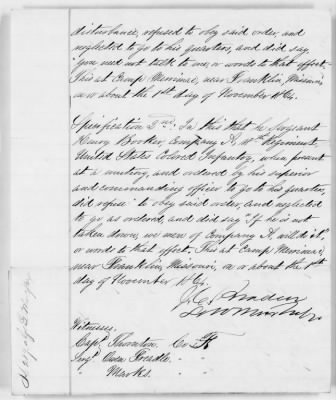 disturbance, refused to obey said order, and
neglected to go to his quarters, and did say
"you need not talk to me, or words to that effect.
This at Camp Merrimac, near Franklin, Missouri,
on or about the 1st day of November 1864.
Specification 2nd. In this that he Sergeant
Henry Booker, Company A, Regiment,
United States Colored Infantry, when present
at a mutiny, and ordered by his superior
and commanding officer to go to his quarters,
did refuse to obey said order, and neglected
to go as ordered, and did say "If he is not
taken down, we men of Company A will do it"
or words to that effect. This at Camp Merrimac,
near Franklin, Missouri, on or about the 1st
day of November 1864.
Witnesses,
Capt. Thornton, Co
Sergt. Owen
Marks.